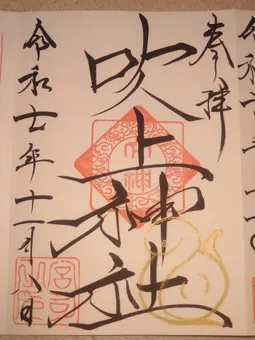 奉拝
吹上神社
令和七年十一月八日